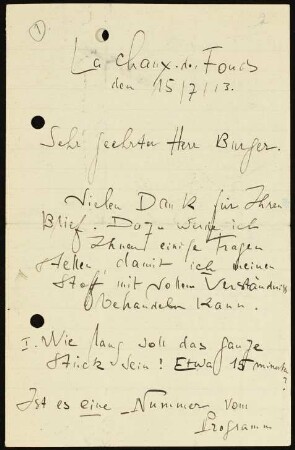 1
2
La Chaux-de-Fonds
den 15/7/13.
Sehr geehrter Herr Burger.
Vielen Dank für Ihren
Brief. Dazu werde ich
Ihnen einige Fragen
stellen, damit ich meinen
Stoff mit vollem Verständniss
behandeln kann.
I. Wie lang soll das ganze
Stück sein? Etwa 15 minuten?
Ist es eine Nummer vom
Programm